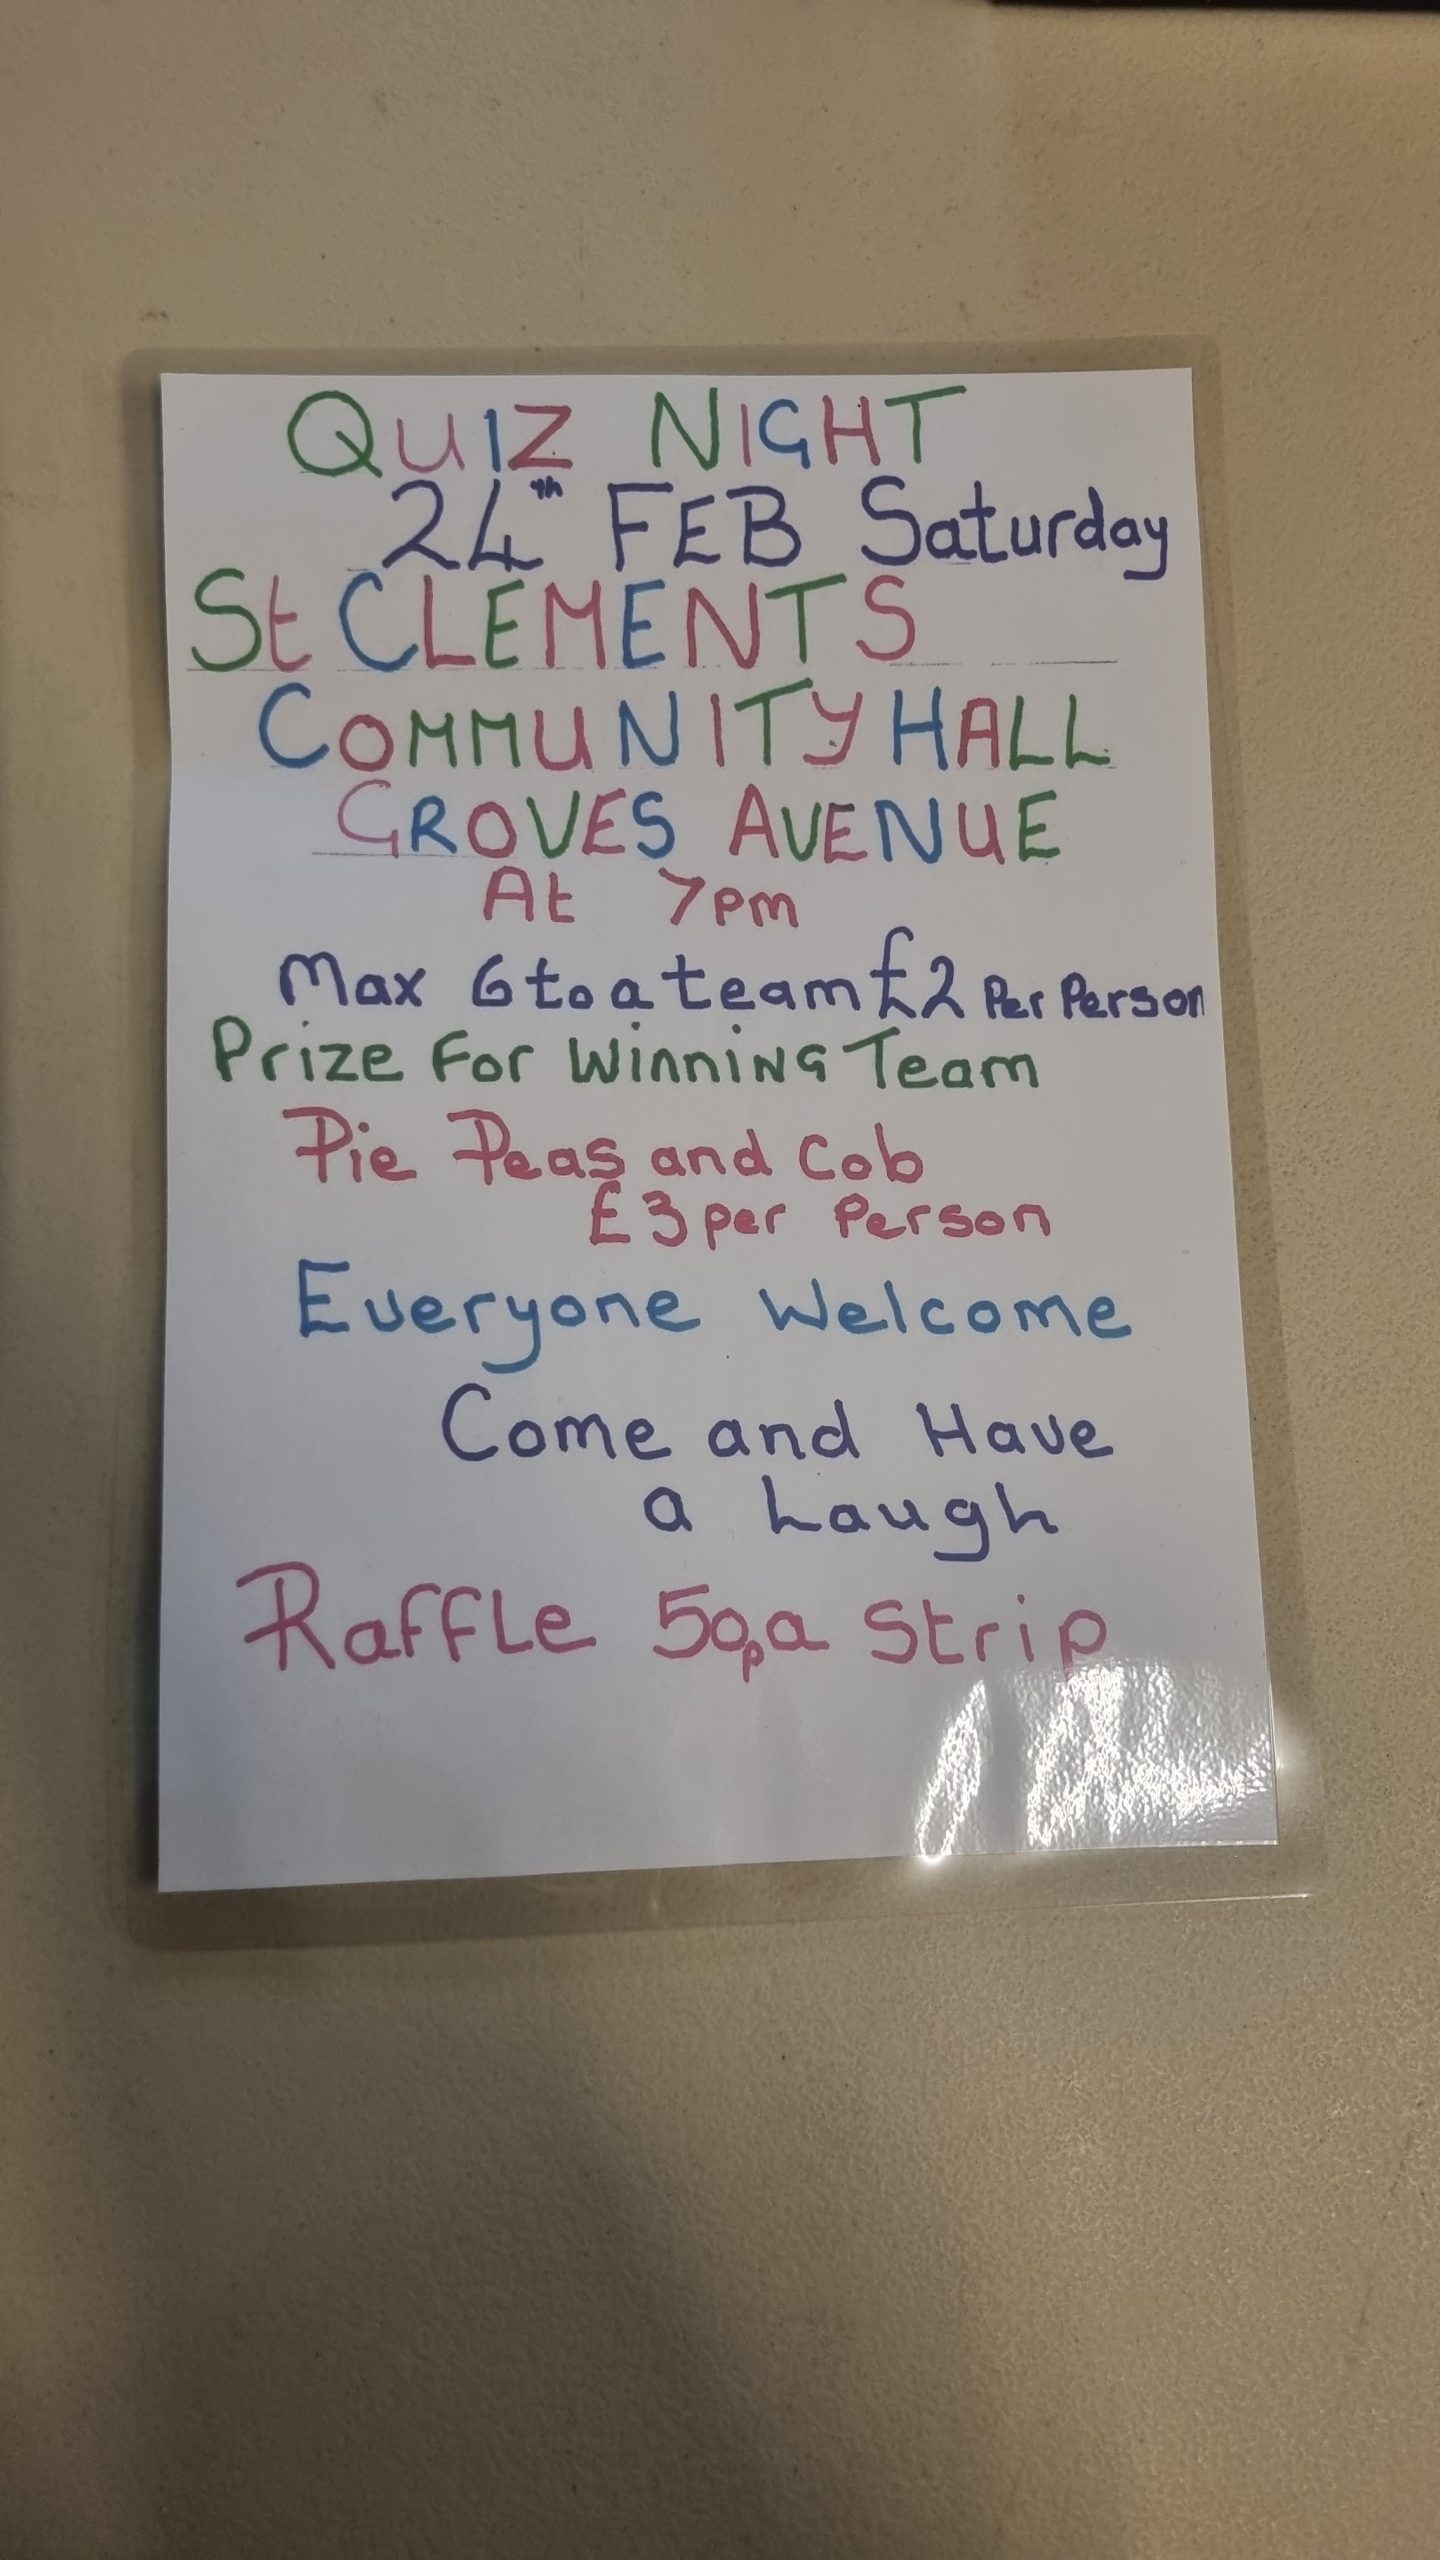 QUIZ NIGHT
24th FEB Saturday
St CLEMENTS
COMMUNITY HALL
GROVES AVENUE
At 7pm
Max 6 to a team £2 Per Person
Prize For Winning Team
Pie Peas and Cob
£3 per Person
Everyone Welcome
Come and Have
a Laugh
Raffle 50p a Strip